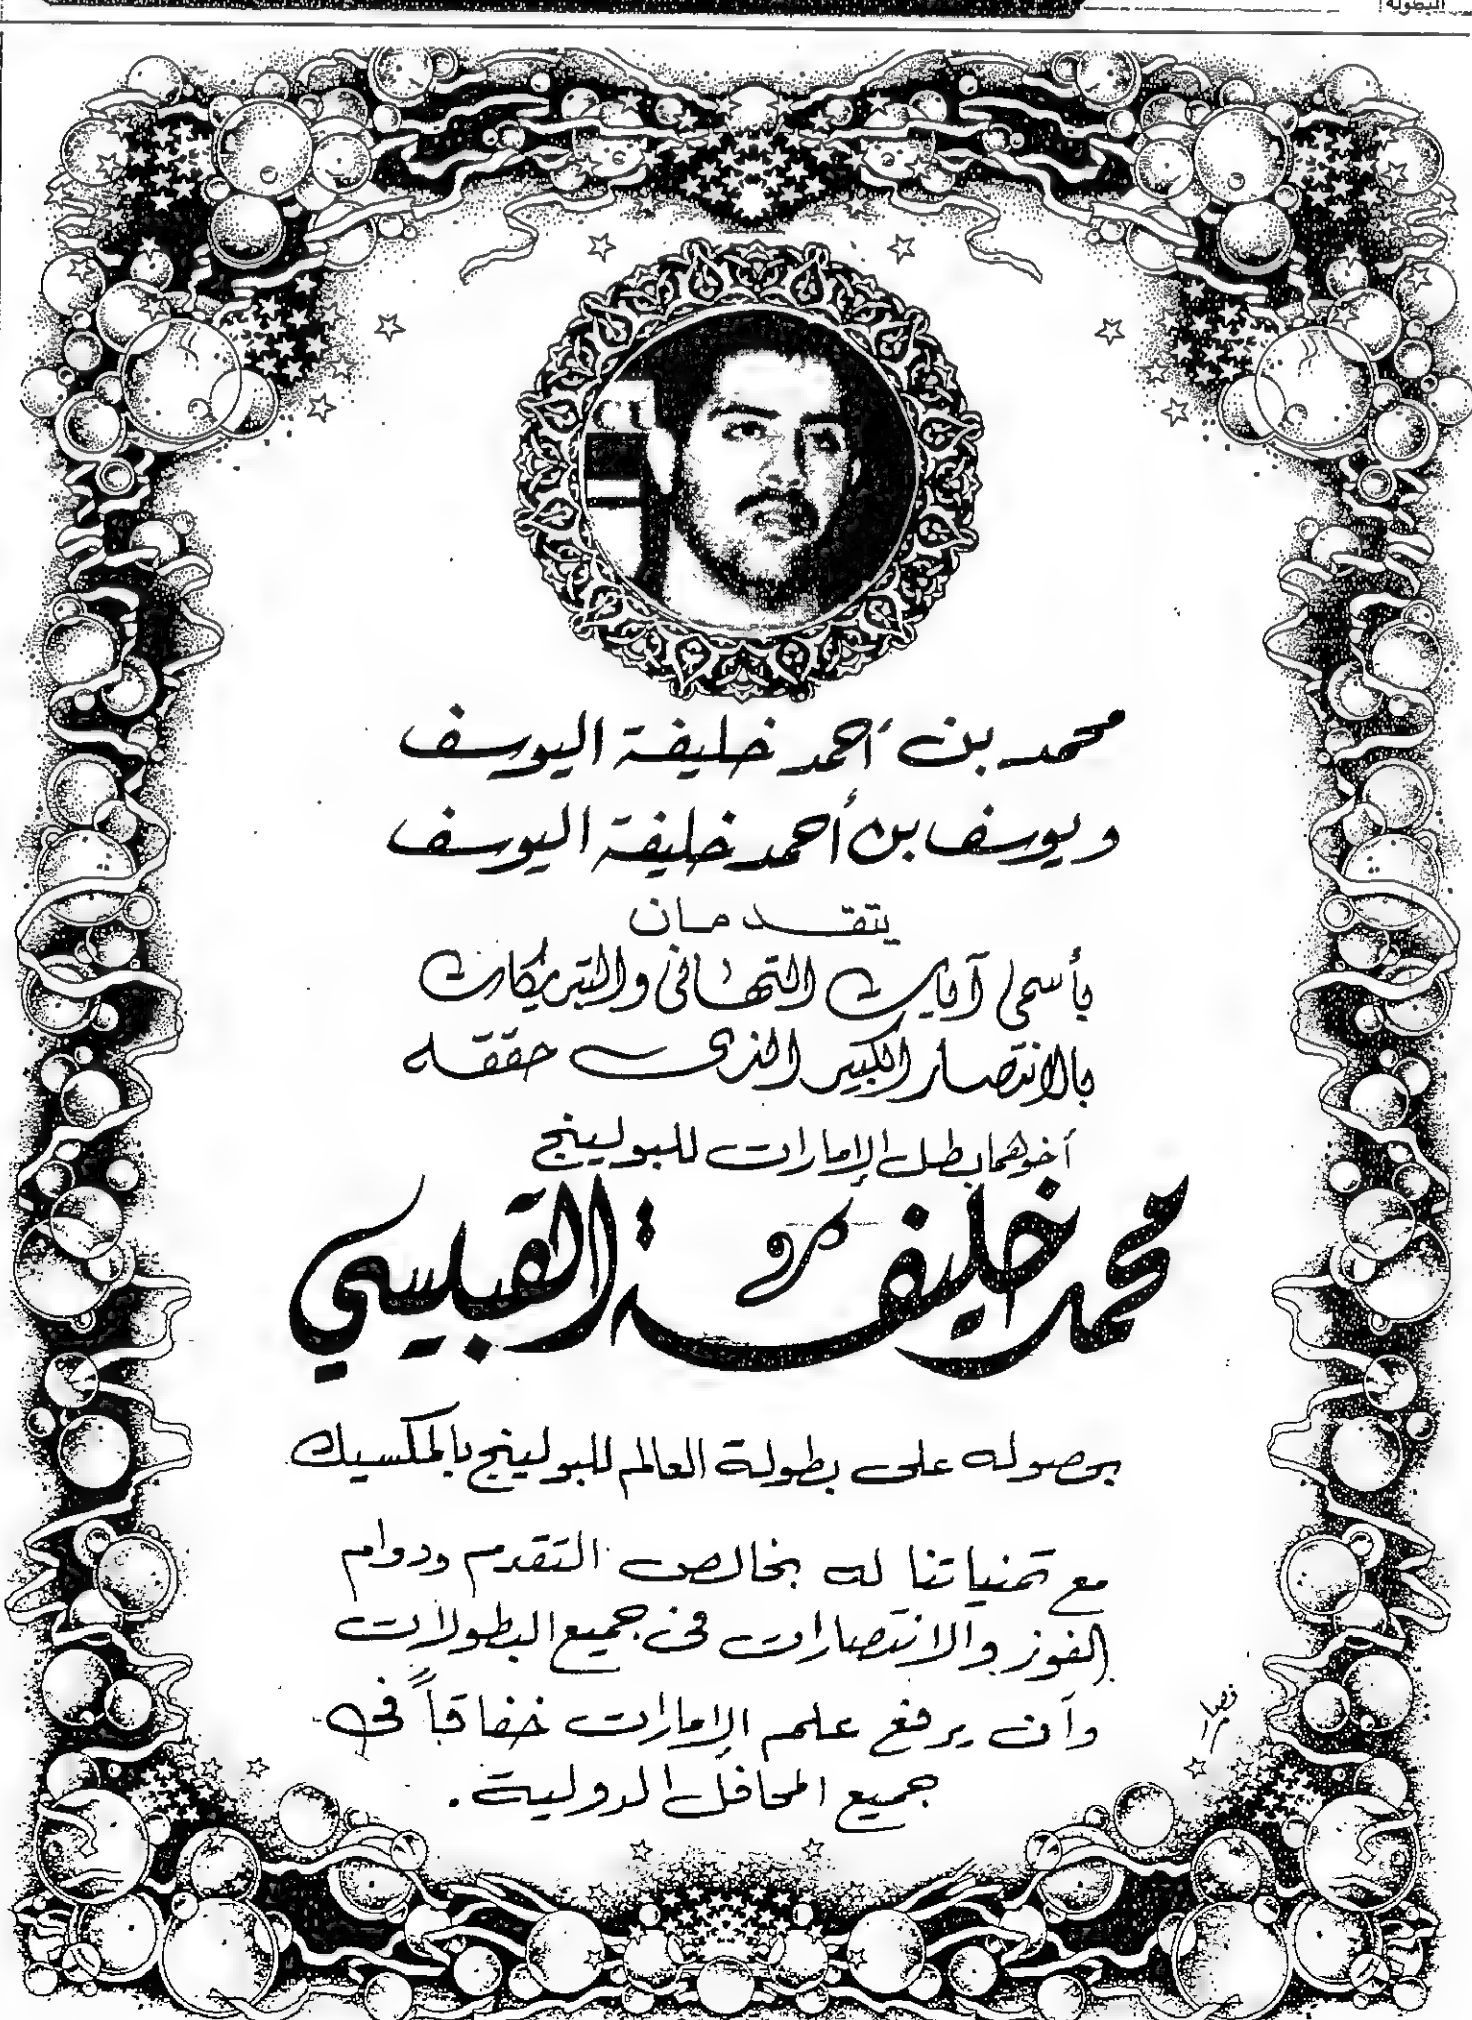 البطولة!
محمد بن أحمد خليفة اليوسف
ويوسف بن أحمد خليفة اليوسف
يتقدمان
بأسمى آيات التهانى والتبريكات
بالانتصار الكبير الذى حققه
أخوهما بطل الإمارات للبولينج
محمد خليفة القبيسي
بحصوله على بطولة العالم للبولينج بالمكسيك
مع تمنياتنا له بخالص التقدم ودوام
الفوز والانتصارات فى جميع البطولات
وأن يرفع علم الإمارات خفاقاً فى
جميع المحافل الدولية.